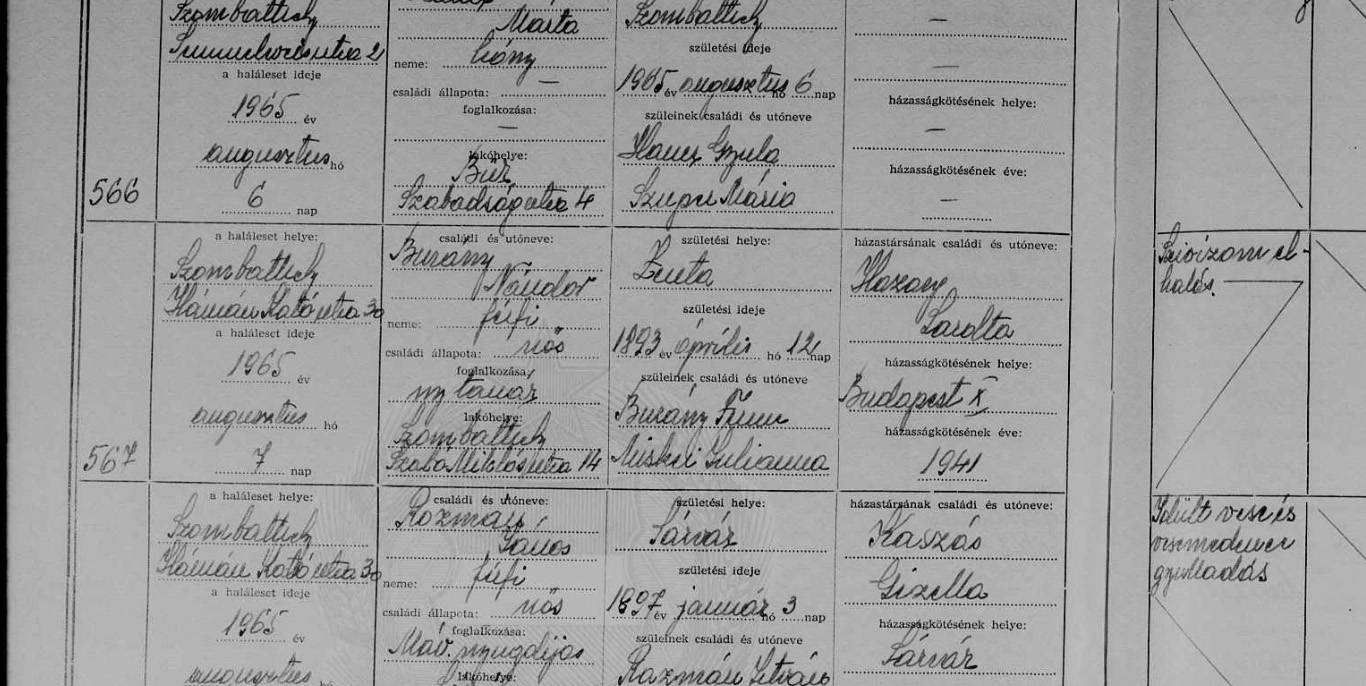 Szombathely
Márta
Szombathely
—
2
születési ideje
a haláleset ideje
neme: leány
—
1965 év augusztus hó 6 nap
családi állapota: —
házasságkötésének helye:
1965 év
foglalkozása:
szüleinek családi és utóneve
—
—
augusztus hó
lakóhelye:
Haucz Gyula
Bük
házasságkötésének éve:
566
6 nap
Szabadság utca 4
Mária
—
a haláleset helye:
családi és utóneve:
születési helye:
házastársának családi és utóneve:
Szombathely
Burány
Zenta
Szívizom el-
Nándor
halás.
Hámán Kató utca 30
neme: férfi
születési ideje
Sarolta
a haláleset ideje
családi állapota: nős
1893 év április hó 12 nap
házasságkötésének helye:
1965 év
foglalkozása:
szüleinek családi és utóneve
ny tanár
Budapest X
augusztus hó
lakóhelye:
Burány
házasságkötésének éve:
Szombathely
567
7 nap
Szabó Miklós utca 14
Julianna
1941
a haláleset helye:
családi és utóneve:
születési helye:
házastársának családi és utóneve:
Szombathely
Rozmán
Sárvár
Kaszás
Idült vese és
János
vesemedence
Hámán Kató utca 30
neme: férfi
születési ideje
Gizella
gyulladás
a haláleset ideje
családi állapota: nős
1897 év január hó 3 nap
1965 év
foglalkozása:
szüleinek családi és utóneve
házasságkötésének helye:
Máv. nyugdíjas
Sárvár
augusztus hó
lakóhelye:
Rozmán István